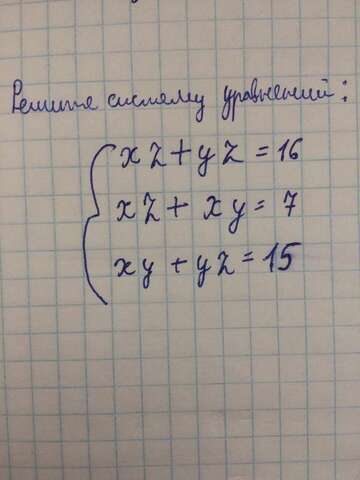 Решите систему уравнений:
xz + yz = 16
xz + xy = 7
xy + yz = 15